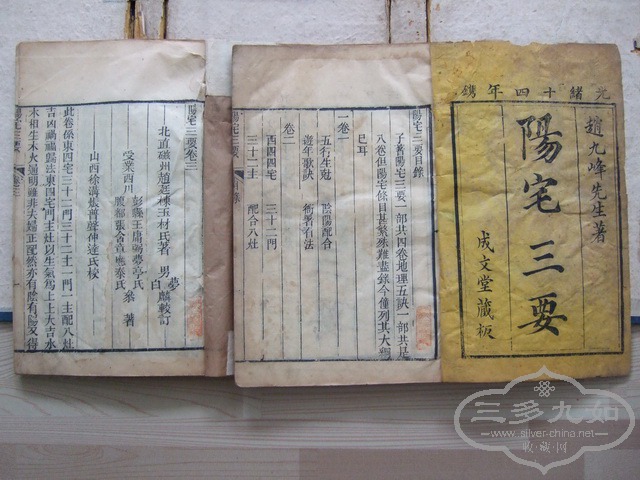 光緒十四年鐫
趙九峰先生著
陽宅三要
成文堂藏板
陽宅三要目錄
子著陽宅三要一部共四卷地理五訣一部共足
八卷但陽宅條目甚繁殊難盡錄今僅列其大概
巳耳
一卷
五行生尅 陰陽配合
遊年歌訣
卷二
西四四宅 三十二門
三十二主 配合八灶
陽宅三要
陽宅三要卷三
北直磁州趙廷棟玉材氏著 男
夢麟較訂
受業西川
山西徐溝張普聲伸達氏校
此卷係東四宅三十二門三十二主一門一主配八灶
吉凶禍福歸法東四宅門主灶以生氣為上上大吉水
木相生木火通明雖非夫婦正配然亦有陰有陽又得
陽宅三要 卷三
三多九如
www.silver-china.com
收·藏·网